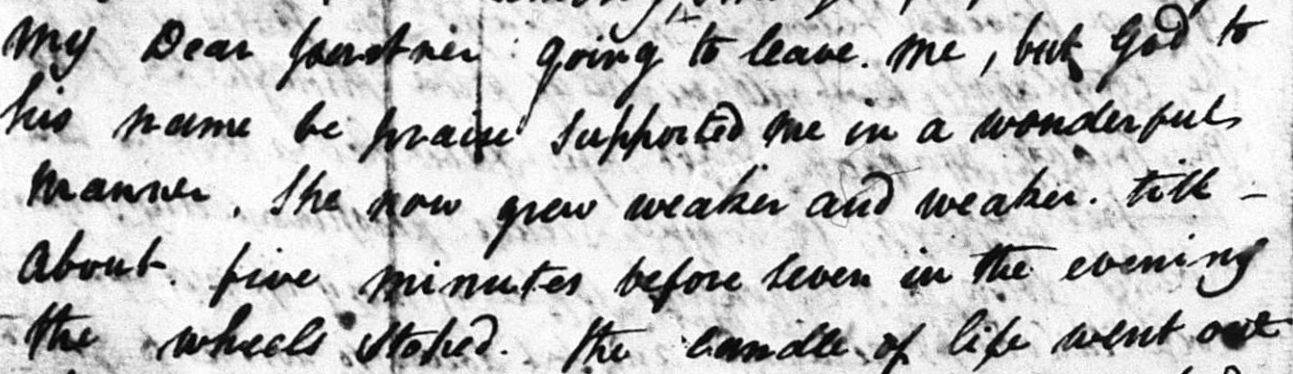 My Dear partner going to leave. me, but God to
his name be praise supported me in a wonderful
manner. She now grew weaker and weaker. till -
About. five minutes before seven in the evening
the wheels stoped. the candle of life went out